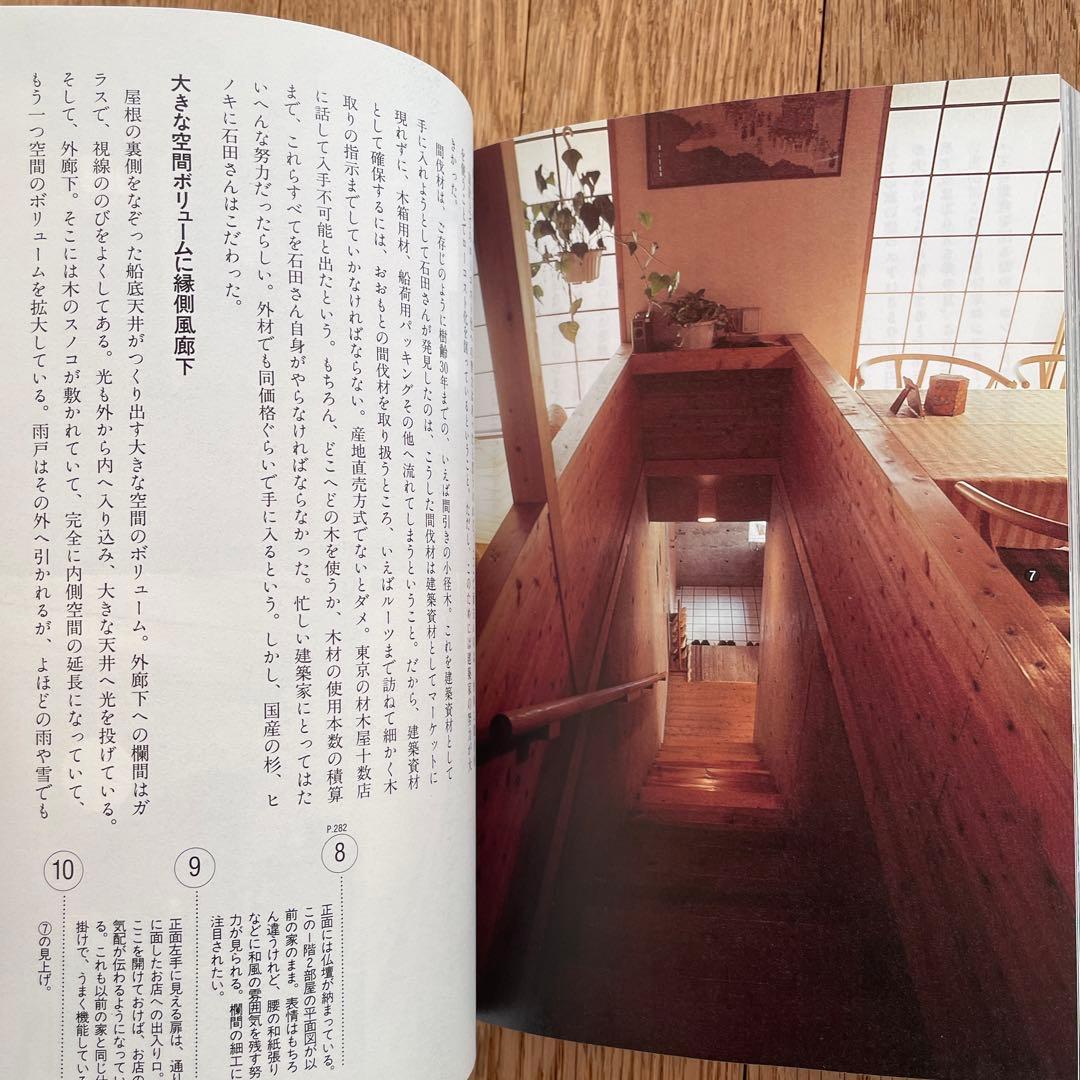 きかった。
間伐材は、ご存じのように樹齢30年までの、いえば間引きの小径木。これを建築資材として
手に入れようとして石田さんが発見したのは、こうした間伐材は建築資材としてマーケットに
現れずに、木箱用材、船荷用パッキングその他へ流れてしまうということ。だから、建築資材
として確保するには、おおもとの間伐材を取り扱うところ、いえばルーツまで訪ねて細かく木
取りの指示までしていかなければならない。産地直売方式でないとダメ。東京の材木屋十数店
に話して入手不可能と出たという。もちろん、どこへどの木を使うか、木材の使用本数の積算
まで、これらすべてを石田さん自身がやらなければならなかった。忙しい建築家にとってはた
いへんな努力だったらしい。外材でも同価格ぐらいで手に入るという。しかし、国産の杉、ヒ
ノキに石田さんはこだわった。
大きな空間ボリュームに縁側風廊下
屋根の裏側をなぞった船底天井がつくり出す大きな空間のボリューム。外廊下への欄間はガ
ラスで、視線ののびをよくしてある。光も外から内へ入り込み、大きな天井へ光を投げている。
そして、外廊下。そこには木のスノコが敷かれていて、完全に内側空間の延長になっていて、
もう一つ空間のボリュームを拡大している。雨戸はその外へ引かれるが、よほどの雨や雪でも
P.282
8
正面には仏壇が納まっている。
この1階2部屋の平面図が以
前の家のまま。表情はもちろ
ん違うけれど、腰の和紙張り
などに和風の雰囲気を残す努
力が見られる。欄間の細工に
注目されたい。
9
正面左手に見える扉は、通り
に面したお店への出入り口。
ここを開けておけば、お店の
気配が伝わるようになってい
る。これも以前の家と同じ仕
掛けで、うまく機能している
10
⑦の見上げ。
7